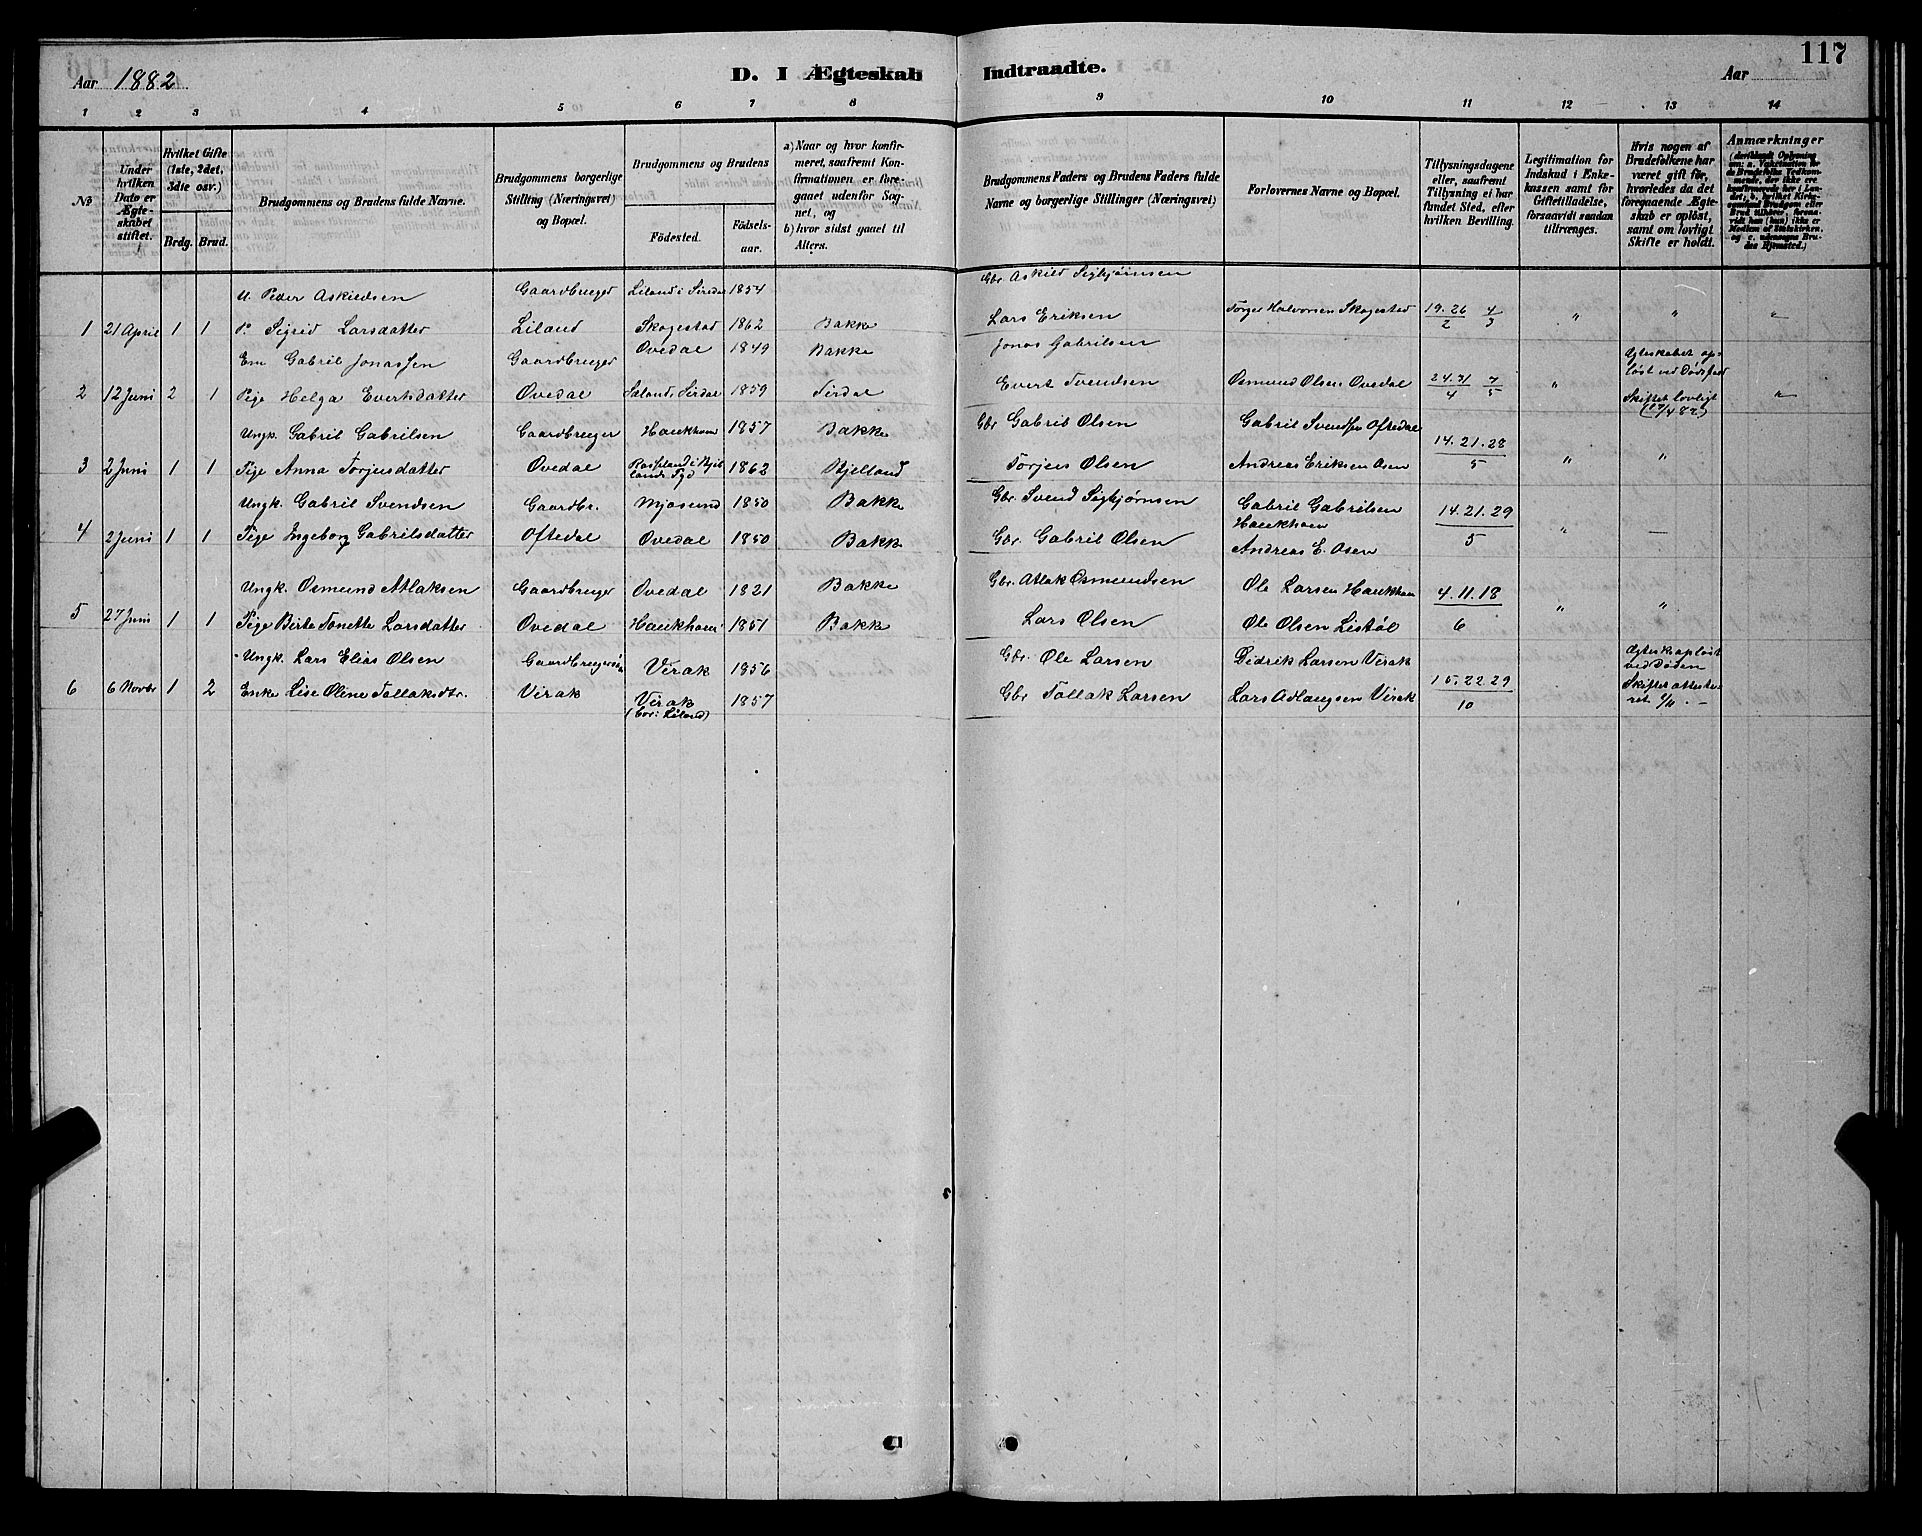 117
Aar 1882
D. I Ægteskab
Indtraadte.
Aar
1 2 3 4 5 6 7 8 9 10 11 12 13 14
№
Under hvilken Dato er Ægteskabet stiftet.
Hvilket Gifte (1ste, 2det, 3die osv.)
Brdg. Brud.
Brudgommens og Brudens fulde Navne.
Brudgommens borgerlige Stilling (Næringsvei) og Bopæl.
Brudgommens og Brudens
Födested.
Födselsaar.
a) Naar og hvor konfirmeret, saafremt Konfirmationen er foregaaet udenfor Sognet, og
b) hvor sidst gaaet til Alters.
Brudgommens Faders og Brudens Faders fulde Navne og borgerlige Stillinger (Næringsvei)
Forlovernes Navne og Bopæl.
Tillysningsdagene eller, saafremt Tillysning ei har fundet Sted, efter hvilken Bevilling.
Legitimation for Indskud i Enkekassen samt for Giftetilladelse, forsaavidt saadan tiltrænges.
Hvis nogen af Brudefolkene har været gift før, hvorledes da det foregaaende Ægteskab er oplöst, samt om lovligt Skifte er holdt.
Anmærkninger
U. Peder Askildsen Gaardbruger Liland i Siredal 1854 Gbr Askild Sigbjørnsen
1 21 April 1 1 P. Sigrid Larsdatter Liland Skogestad 1862 Bakke Lars Eriksen Torger Halvorsen Skogestad 19. 26/2 4/3 " " "
Em Gabriel Jonassen Gaardbruger Ovedal 1849 Bakke Jonas Gabrielsen Ægteskabet opløst ved Dødsfald
2 12 Juni 2 1 Pige Helga Evertsdatter Ovedal Sirdal 1859 Sirdal Evert Svendsen Osmund Olsen Ovedal 24. 31/4 7/5 " Skiftet lovligt "
Ungk. Gabriel Gabrielsen Gaardbruger Haukhom 1857 Bakke Gbr Gabriel Olsen Gabriel Svendsen Oftedal 14. 21. 28
3 2 Juni 1 1 Pige Anna Torjusdatter Ovedal 1862 Bjelland Torjus Olsen Andreas Eriksen Osen 5 " "
Ungk. Gabriel Svendsen Gaardbr. Mjøsund 1850 Bakke Gbr. Svend Sigbjørnsen Gabriel Gabrielsen Haukhom 14. 21. 29
4 2 Juni 1 1 Pige Ingeborg Gabrielsdatter Oftedal Ovedal 1850 Bakke Gbr. Gabriel Olsen Andreas E. Osen 5 " —
Ungk. Osmund Atlaksen Gaardbruger Ovedal 1821 Bakke Gbr. Atlak Osmundsen Ole Larsen Haukhom 4. 11. 18
5 27 Juni 1 1 Pige Birte Tonette Larsdatter Ovedal Haukhom 1851 Bakke Lars Olsen Ole Olsen Listøl 6 " "
Ungk. Lars Elias Olsen Gaardbrugersøn Virak 1856 Gbr. Ole Larsen Didrik Larsen Virak Ægtesk opløst ved Døden
6 6 Novbr 1 2 Enke Lise Oline Tollaksdtr. Virak Virak 1857 Gbr Tollak Larsen Lars Adlaugsen Virak 15. 22. 29/10 Skiftet attesteret